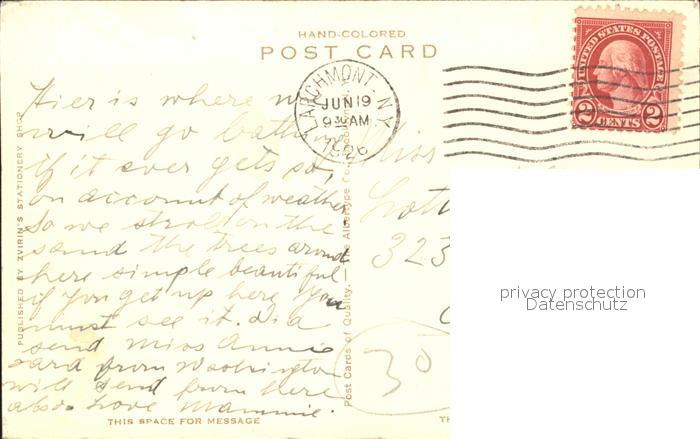 HAND-COLORED
POST CARD
LARCHMONT, N.Y.
JUN 19
9 30 AM
1926
UNITED STATES POSTAGE
2 CENTS 2
Hier is where we
will go bath
if it ever gets so,
on account of weather
So we stroll on the
sand the trees around
here simple beautiful
if you get up here You
must see it. Did
send Miss Annie
card from Washington
will send from here
also. Love Mammie.
THIS SPACE FOR MESSAGE
PUBLISHED BY ZVIRIN'S STATIONERY SHOP
Post Cards of Quality. — The Albertype Co.,
Miss
Lott
323
30
TH
privacy protection
Datenschutz